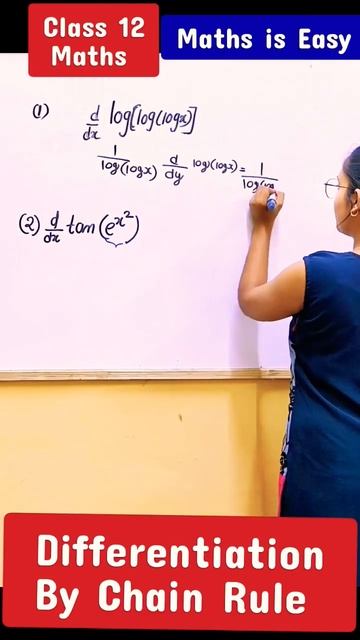 Class 12
Maths
Maths is Easy
(1) d/dx log[log(logx)]
1/log(logx) d/dy log(logx) = 1/log(
(2) d/dx tan(e^x^2)
Differentiation
By Chain Rule